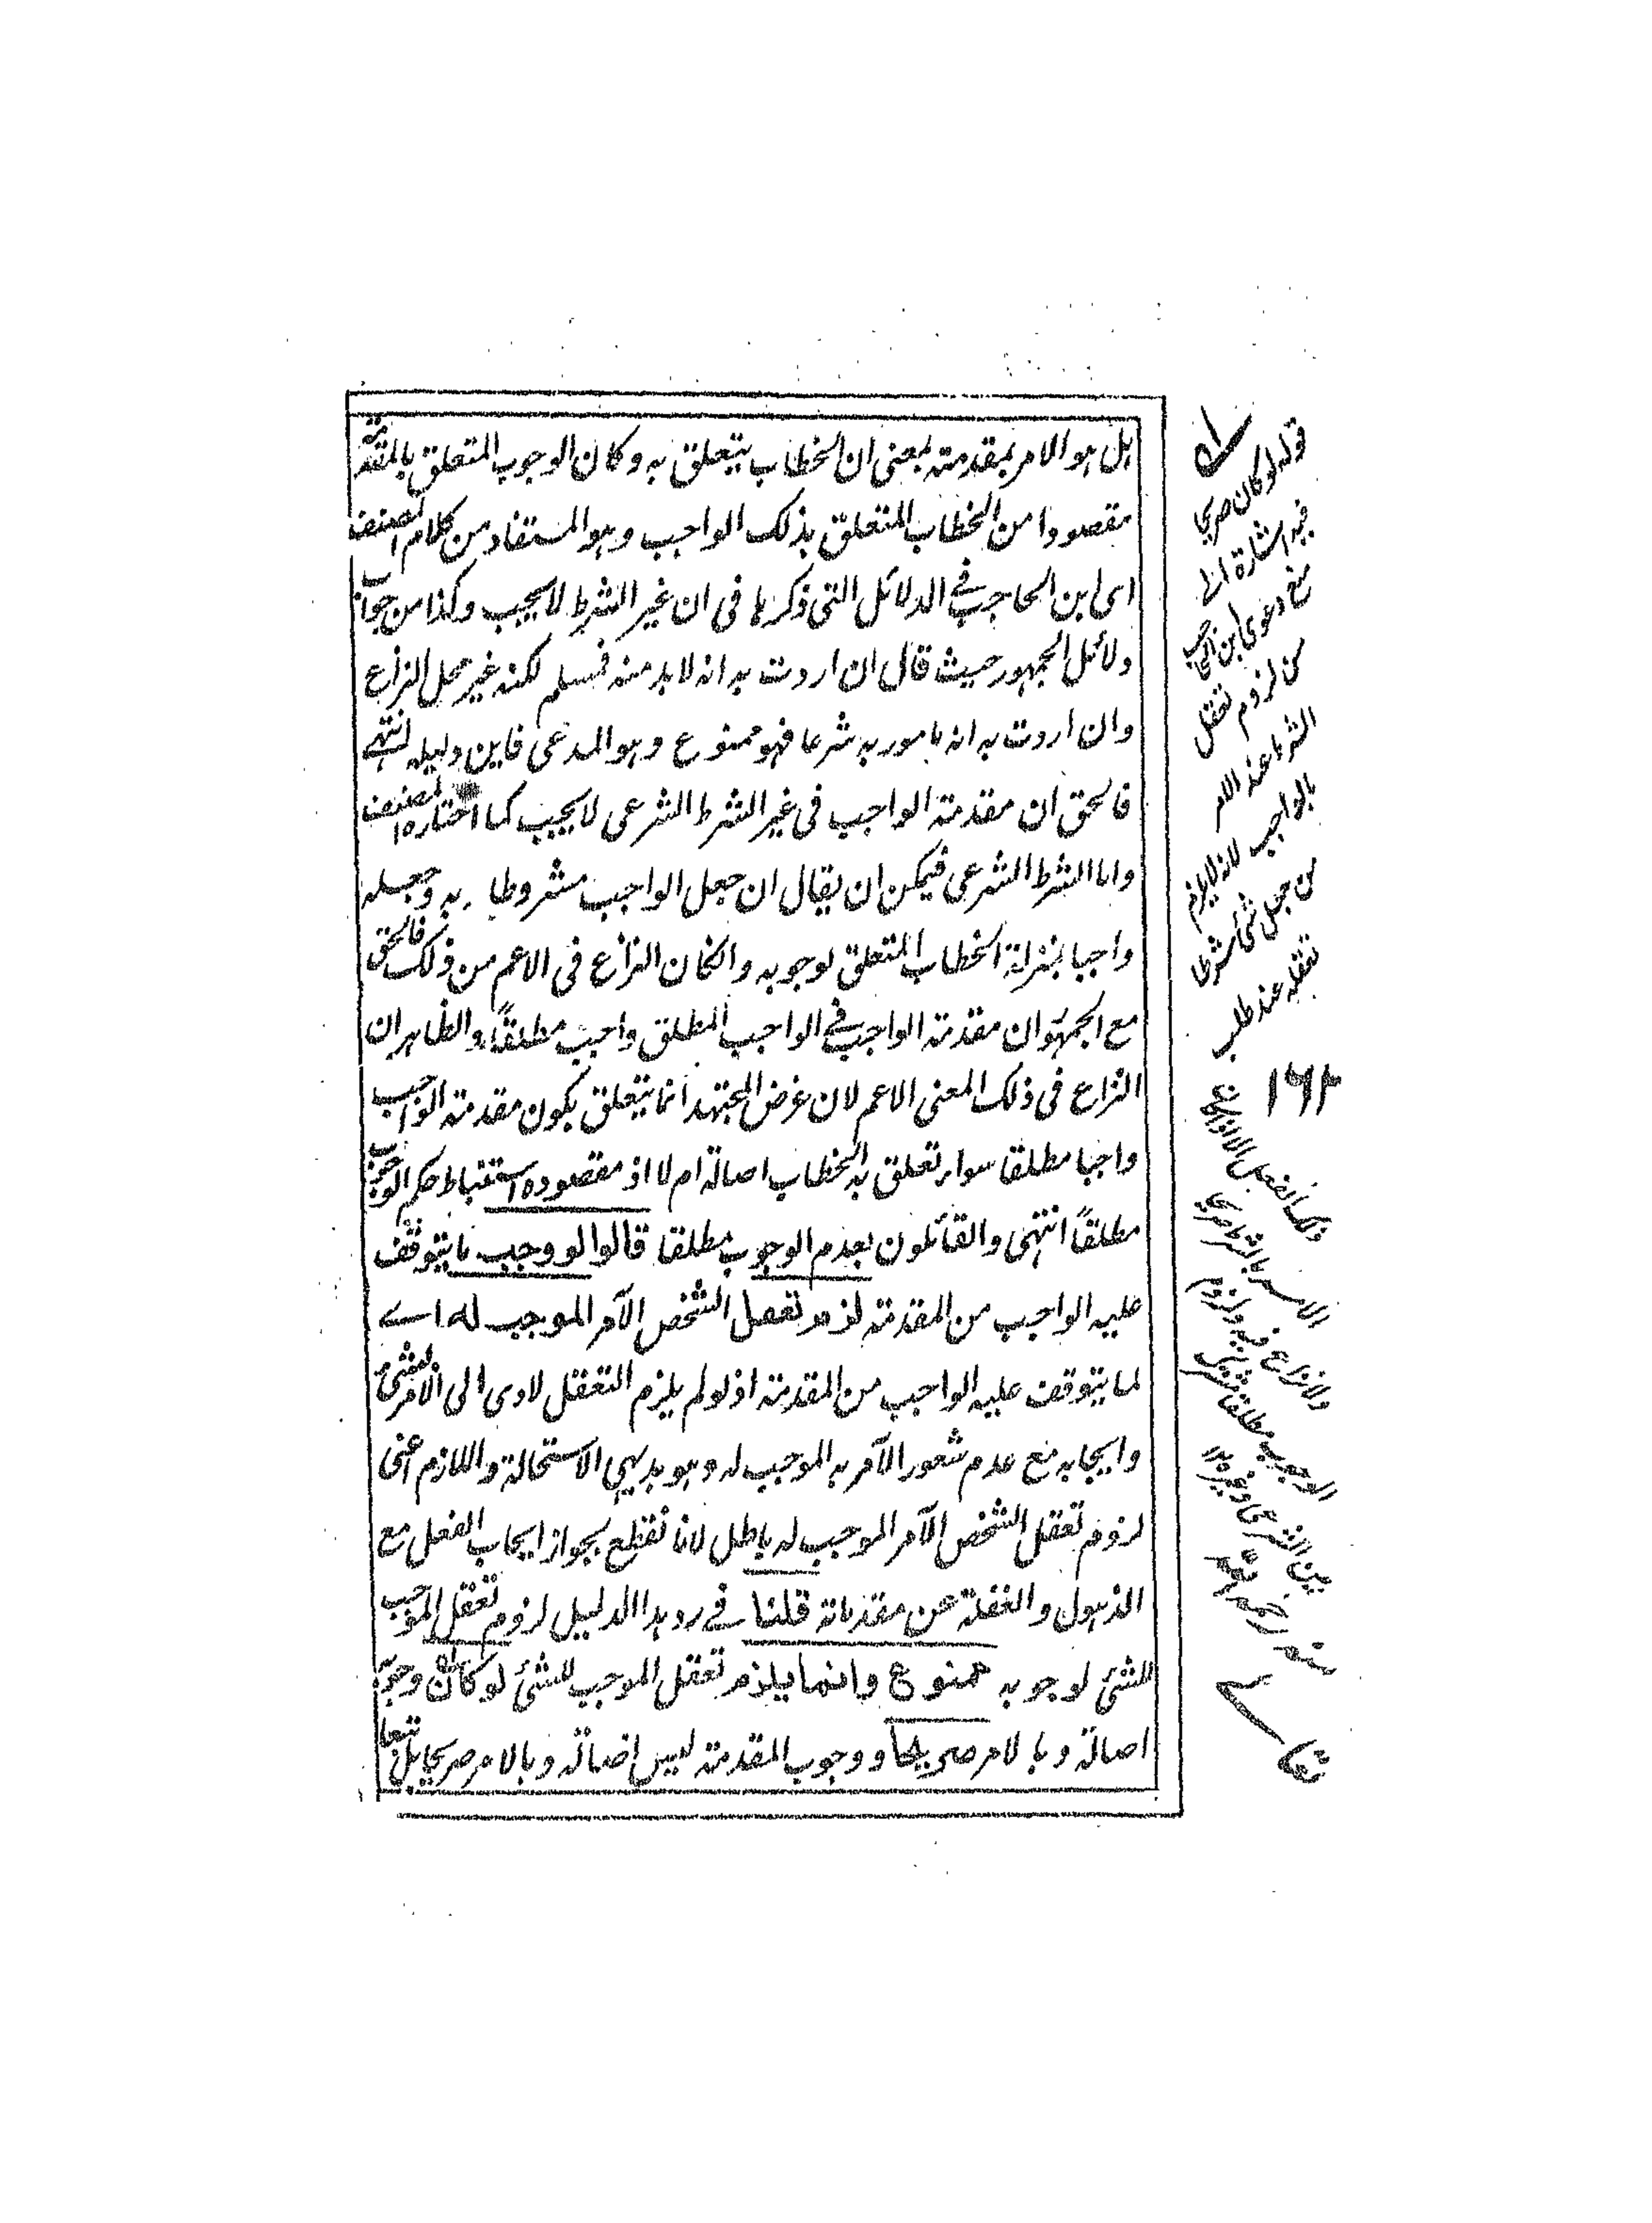 بل هو الامر بمقدمته بمعنى ان الخطاب يتعلق به وكان الوجوب المتعلق بالمقدمة
مقصودا من الخطاب المتعلق بذلك الواجب وهو المستفاد من كلام المصنف
اى ابن الحاجب فى الدلائل التى ذكرها فى ان غير الشرط لا يجب وكذا من جواب
دلائل الجمهور حيث قال ان اردت به انه لا بد منه فمسلم لكنه غير محل النزاع
وان اردت به انه مامور به شرعا فهو ممنوع وهو المدعى فاين دليله انتهى
فالحق ان مقدمة الواجب فى غير الشرط الشرعى لا يجب كما اختاره المصنف
واما الشرط الشرعى فيمكن ان يقال ان جعل الواجب مشروطا به وجعله
واجبا بمنزلة الخطاب المتعلق لوجوبه وانكان النزاع فى الاعم من ذلك فالحق
مع الجمهور ان مقدمة الواجب فى الواجب المطلق واجب مطلقاً والظاهر ان
النزاع فى ذلك المعنى الاعم لان غرض المجتهد انما يتعلق بكون مقدمة الواجب
واجبا مطلقا سواء تعلق به الخطاب اصالة ام لا اذ مقصوده استنباط حكم الوجوب
مطلقاً انتهى والقائلون بعدم الوجوب مطلقا قالوا لو وجب ما يتوقف
عليه الواجب من المقدمة لزم تعقل الشخص الآمر الموجب له اے
لما يتوقف عليه الواجب من المقدمة اذ لو لم يلزم التعقل لادى الى الامر بشئ
وايجابه مع عدم شعور الآمر به الموجب له وهو بديهى الاستحالة واللازم اعنى
لزوم تعقل الشخص الآمر الموجب له باطل لانا نقطع بجواز ايجاب الفعل مع
الذهول والغفلة عن مقدماته قلنا فے رد هذا الدليل لزوم تعقل الموجب
للشئ لوجوبه ممنوع وانما يلزم تعقل الموجب للشئ لو كان وجوبه
اصالة وبالامر صريحا ووجوب المقدمة ليس اصالة وبالامر صريحا بل تبعا
قوله لو كان صريحا
فيه اشارة الى
منع دعوى ابن الحاجب
من لزوم تعقل
الشرط عند الامر
بالواجب لانه لا يلزم
من جعل شئ شرطا
تعقله عند طلب
١٦٢
ولا نزاع فيه ولزوم
الوجوب مطلقا مشترك
بين الشرعى وغيره